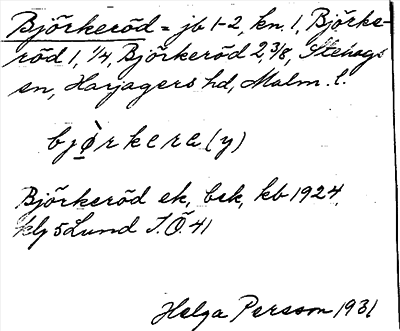 Björkeröd = jb 1-2, kn. 1, Björke-
röd 1, 1/4, Björkeröd 2, 3/8, Stehags
sn, Harjagers hd, Malm. l.
bjø̀rkera (y)
Björkeröd ek, bsk, kb 1924
klg 5 Lund I.Ö. 41
Helga Persson 1931